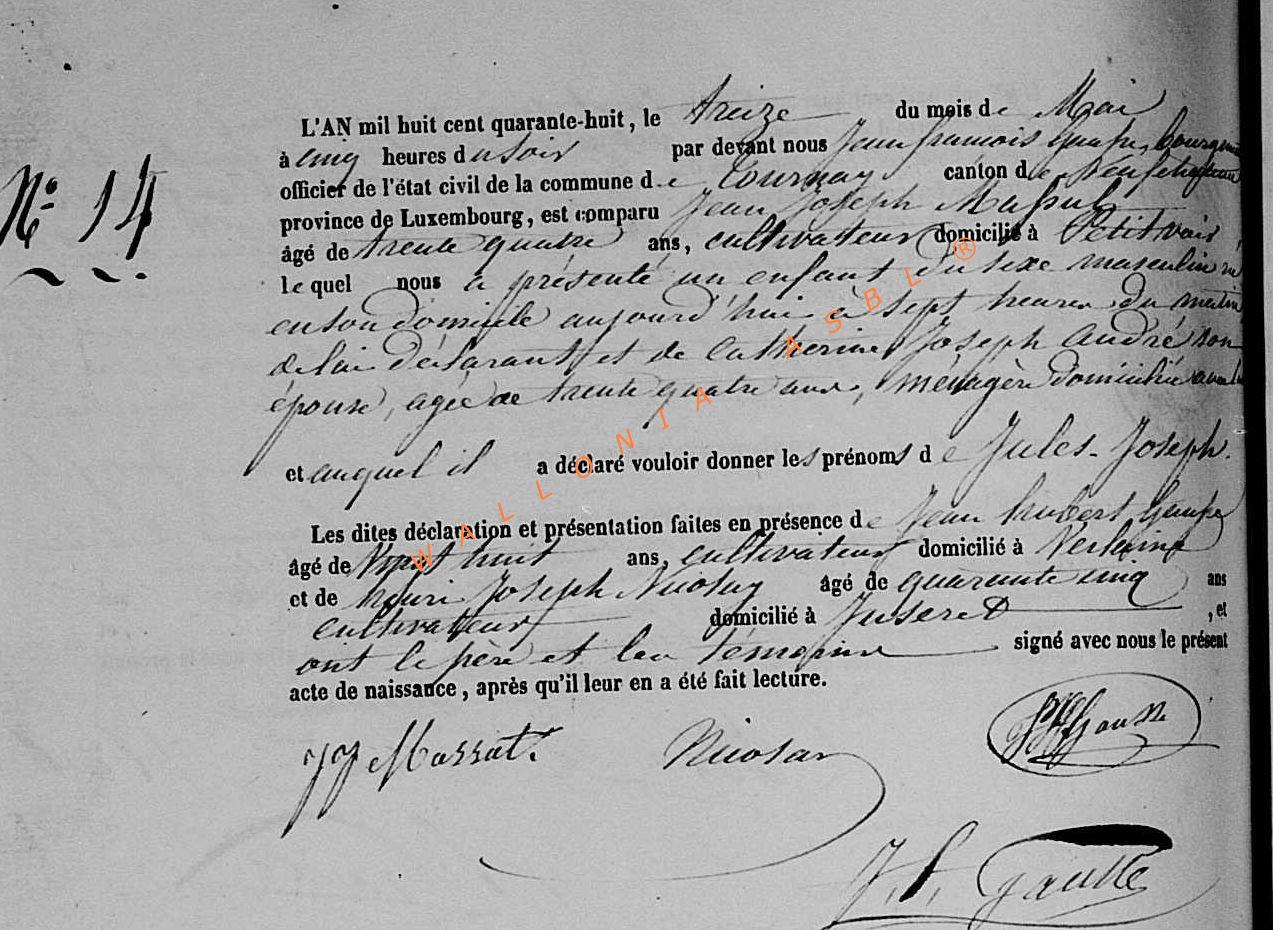 N° 14
L'AN mil huit cent quarante-huit, le treize du mois de Mai
à cinq heures du soir par devant nous Jean françois Gausse, bourgmes
officier de l'état civil de la commune de Tournay canton de Neufchateau
province de Luxembourg, est comparu Jean Joseph Massut
âgé de trente quatre ans, cultivateur domicilié à Petitvoir,
le quel nous a présenté un enfant du sexe masculin né
en son domicile aujourd'hui à sept heures du matin
de lui déclarant et de Catherine Joseph André son
épouse, agée de trente quatre ans, ménagère domiciliée avec lui
et auquel il a déclaré vouloir donner les prénoms de Jules-Joseph.
Les dites déclaration et présentation faites en présence de Jean hubert Gausse
âgé de vingt huit ans, cultivateur domicilié à Verlaine
et de henri Joseph Nicolay âgé de quarante cinq ans
cultivateur domicilié à Juseret, et
ont le père et les témoins signé avec nous le présent
acte de naissance, après qu'il leur en a été fait lecture.
JJ Massut. Nicolay Gausse
J. f. Gausse
WALLONIA ASBL ®